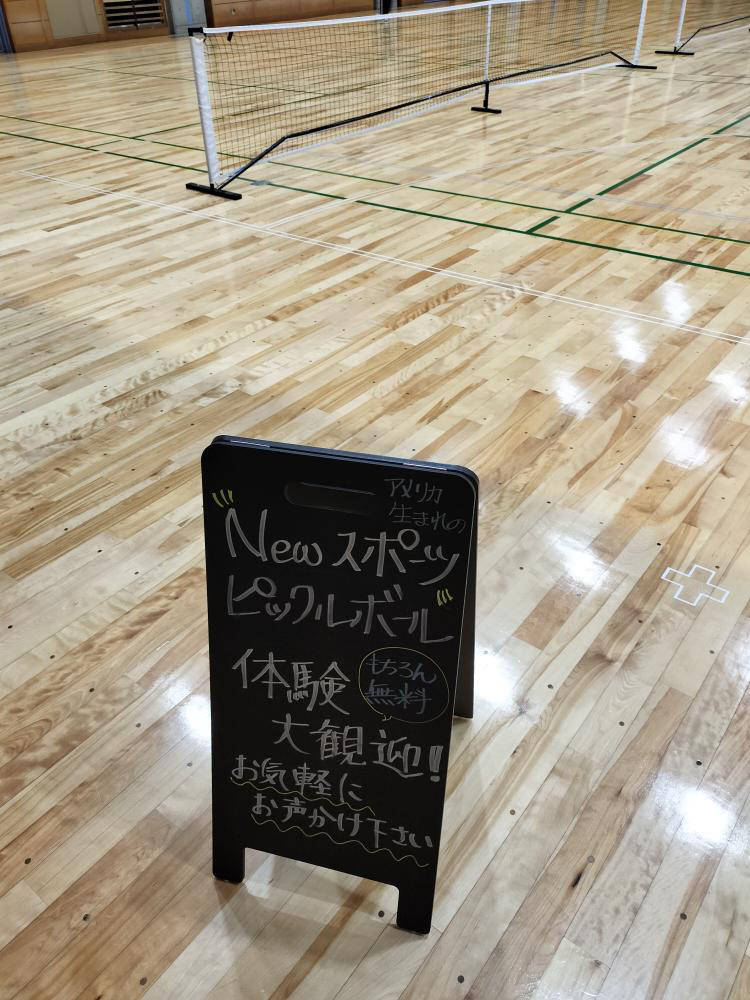 アメリカ
生まれの
"New スポーツ
ピックルボール"
体験
もちろん
無料
大観迎!
お気軽に
お声かけ下さい